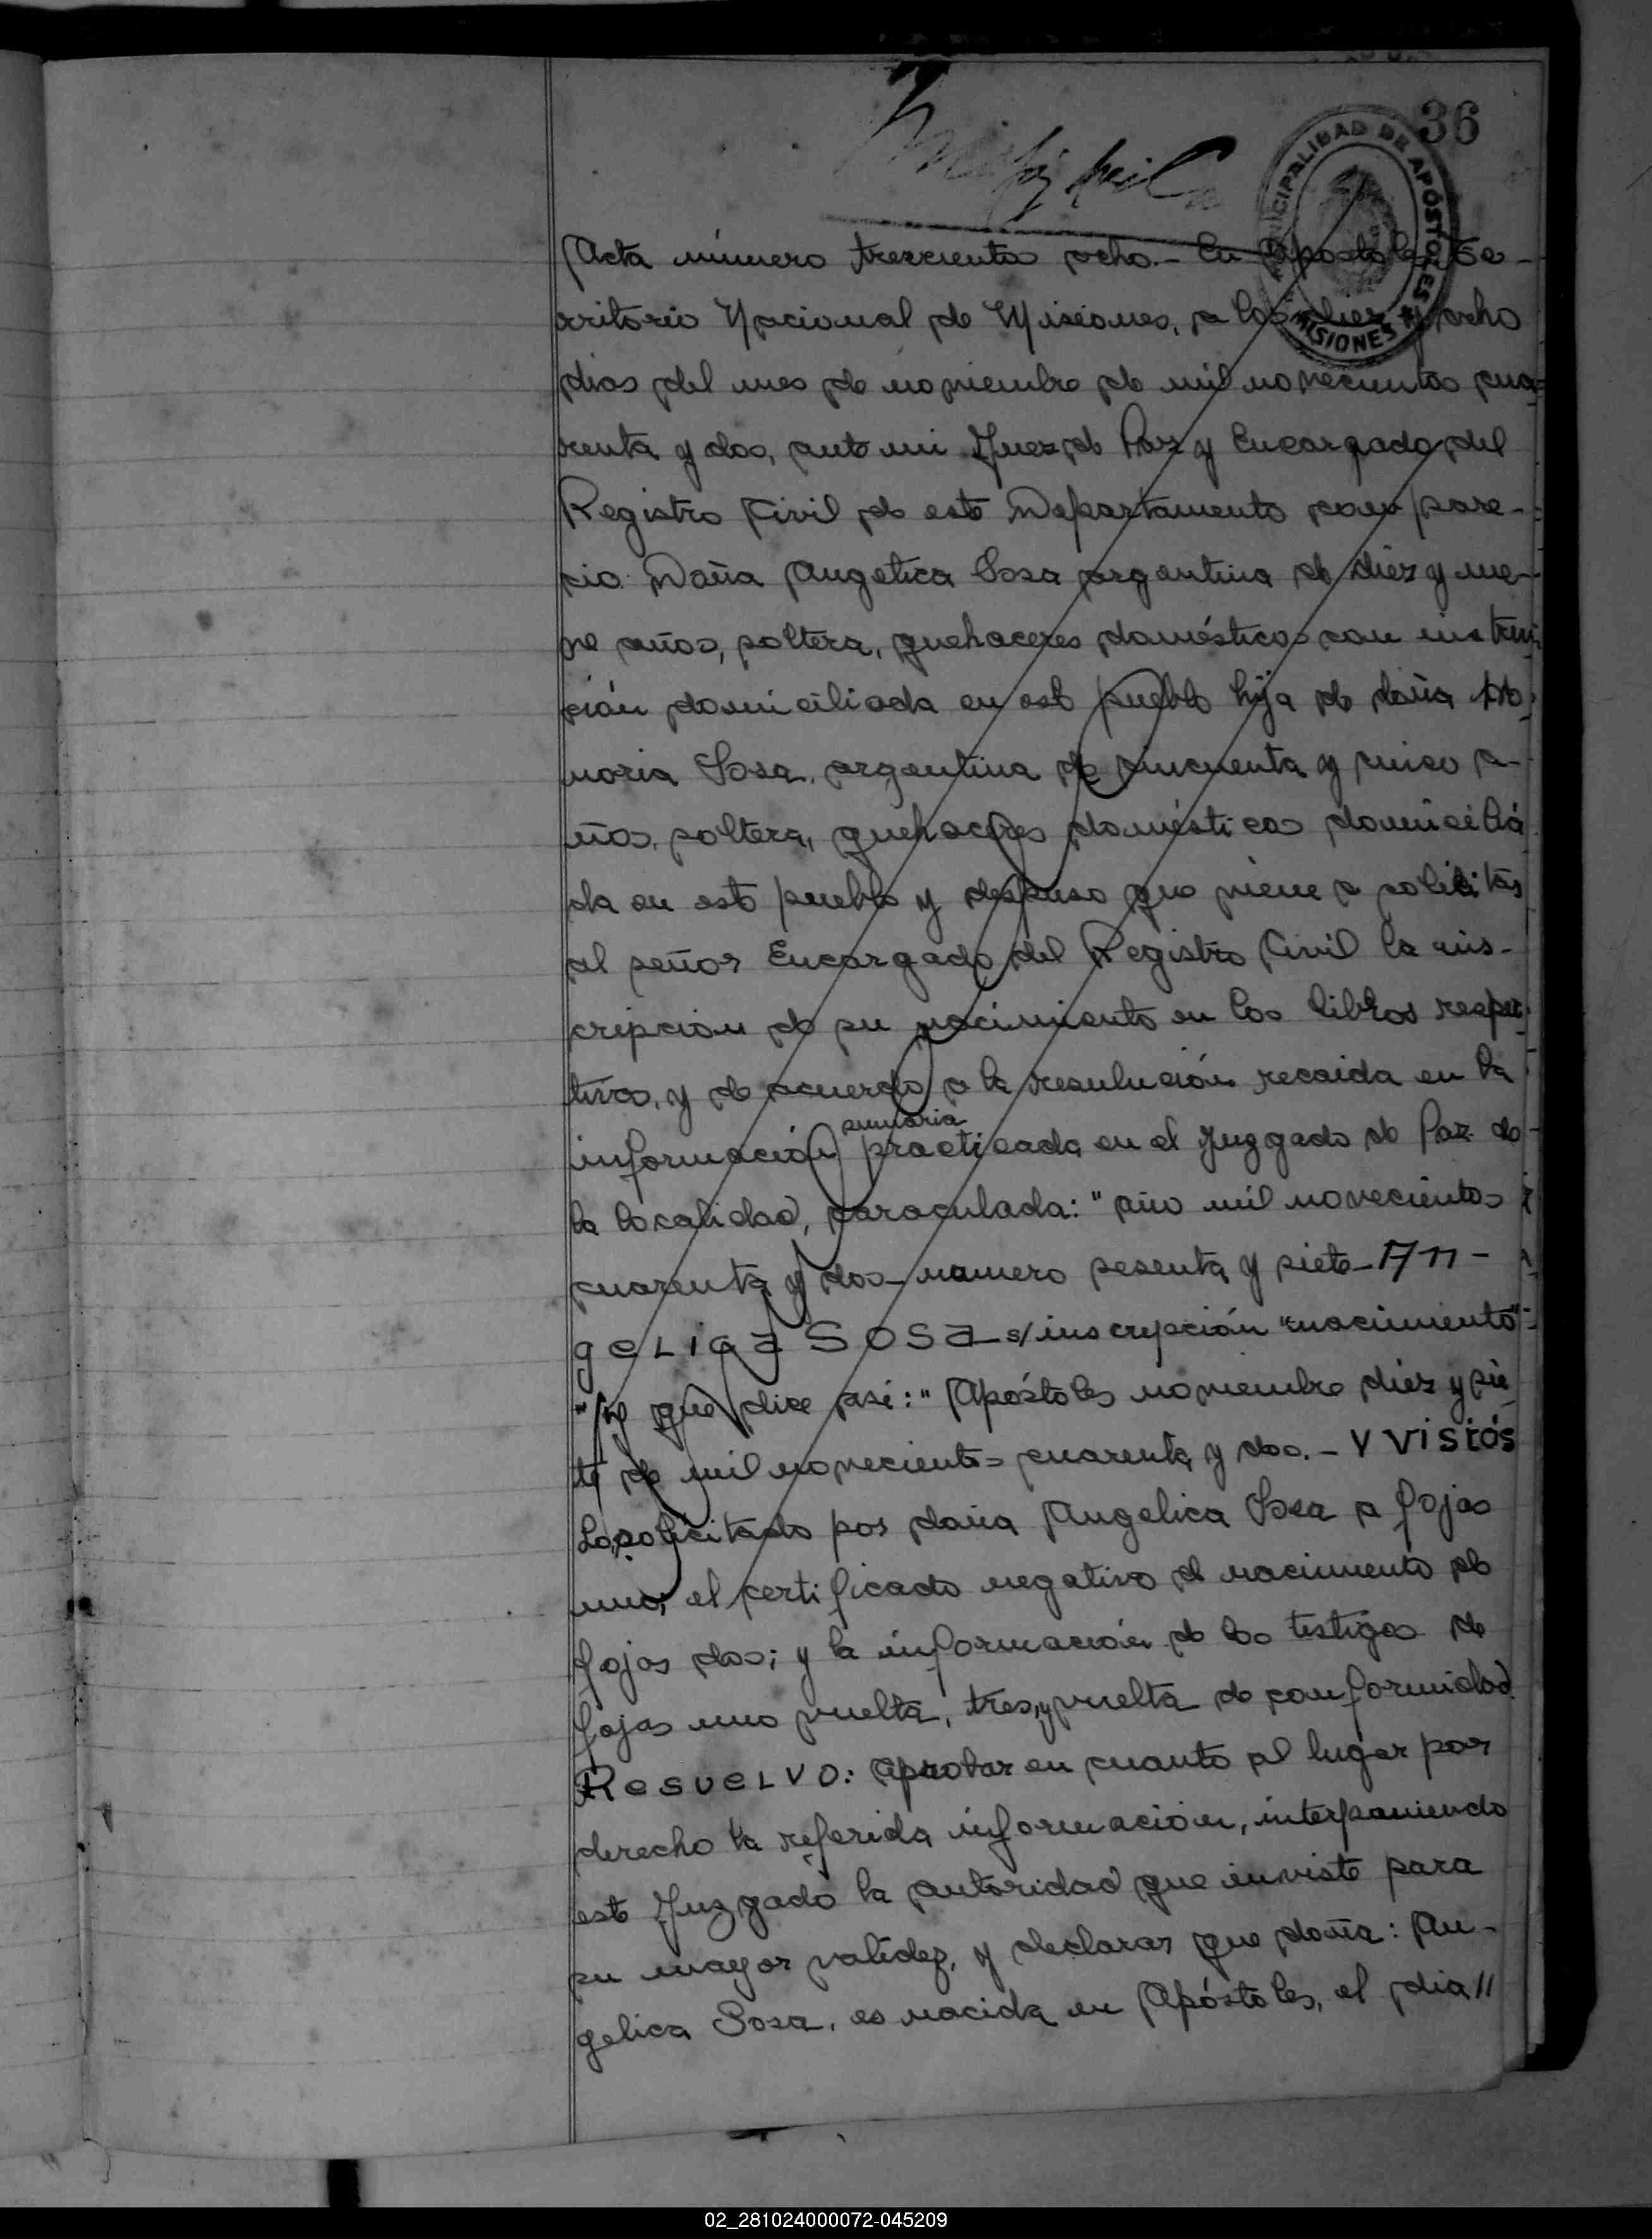 36
MUNICIPALIDAD DE APÓSTOLES
MISIONES
Acta número trescientos ocho.- En Apostoles, Te-
rritorio Nacional de Misiones, a los diez y ocho
dias del mes de noviembre de mil novecientos cua-
renta y dos, ante mi Juez de Paz y Encargado del
Registro Civil de este Departamento compare-
cio: Doña Angelica Sosa argentina de diez y nue-
ve años, soltera, quehaceres domésticos con instruc
ción domiciliada en este pueblo hija de doña Ho-
noria Sosa, argentina de cincuenta y cinco a-
ños, soltera, quehaceres domésticos domicilia
da en este pueblo y despuso que viene a solicitar
al señor Encargado del Registro Civil la ins-
cripcion de su nacimiento en los libros respec-
tivos, y de acuerdo a la resulución recaida en la
sumaria
información practicada en el Juzgado de Paz de
la localidad, caraculada: "año mil novecientos
cuarenta y dos- numero sesenta y siete- An-
gelica Sosa- s/ inscripción "nacimiento"-
y que dice asi: "Apóstoles noviembre diez y sie
te de mil novecientos cuarenta y dos.- Y Vistós
Lo solicitado por doña Angelica Sosa a fojas
uno, el certificado negativo de nacimiento de
fojas dos; y la información de los testigos de
fojas uno vuelta, tres, y vuelta de conformidad
Resuelvo: Aprobar en cuanto al lugar por
derecho la referida información, interponiendo
este Juzgado la autoridad que inviste para
su mayor validez, y declarar que doña: An-
gelica Sosa, es nacida en Apóstoles, el dia //
02_281024000072-045209